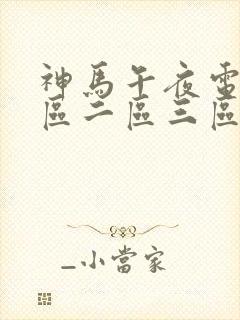 神馬午夜電
區二區三區
_小當家